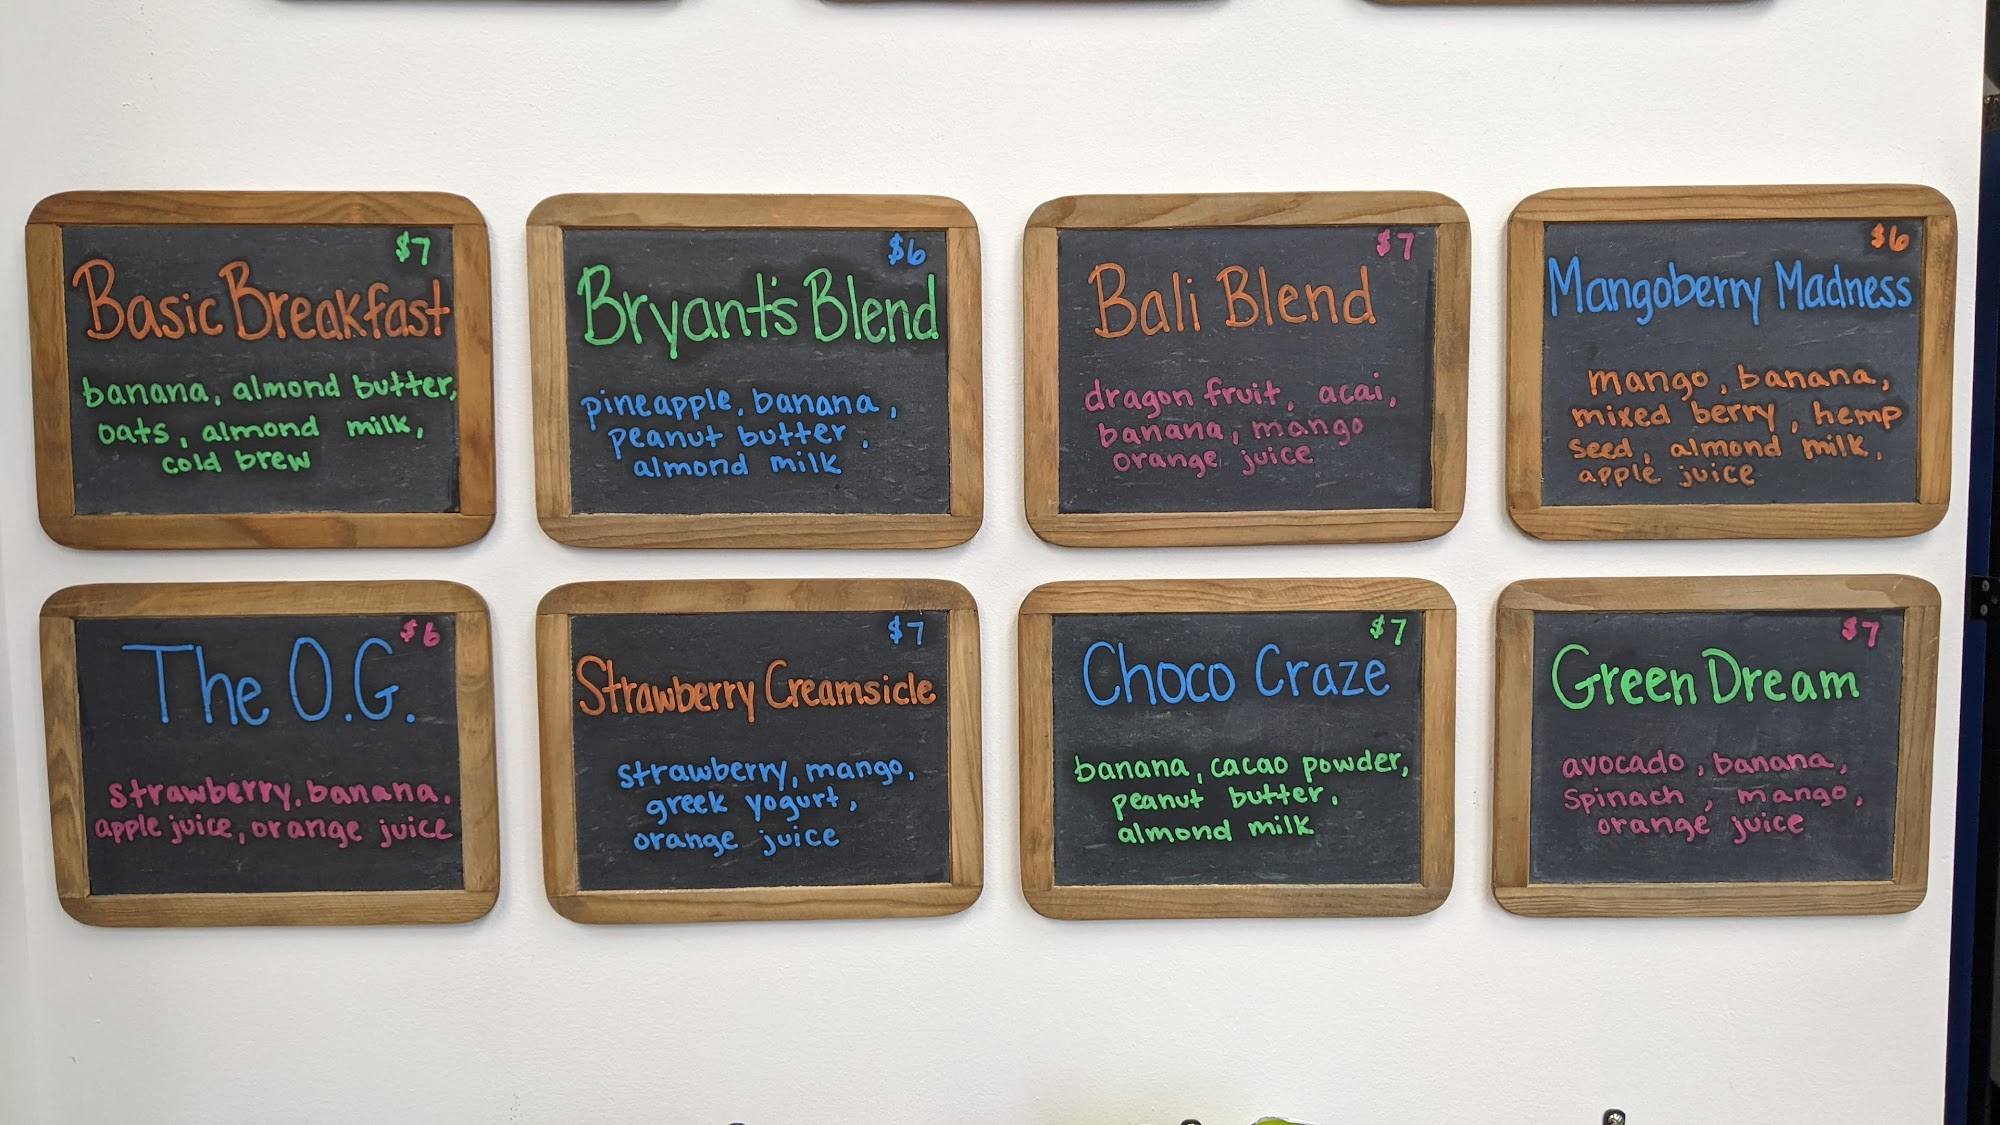 $7
Basic Breakfast
banana, almond butter,
oats, almond milk,
cold brew
$6
Bryant's Blend
pineapple, banana,
peanut butter,
almond milk
$7
Bali Blend
dragon fruit, acai,
banana, mango
orange juice
$6
Mangoberry Madness
mango, banana,
mixed berry, hemp
seed, almond milk,
apple juice
$6
The O.G.
strawberry, banana,
apple juice, orange juice
$7
Strawberry Creamsicle
strawberry, mango,
greek yogurt,
orange juice
$7
Choco Craze
banana, cacao powder,
peanut butter,
almond milk
$7
Green Dream
avocado, banana,
spinach, mango,
orange juice